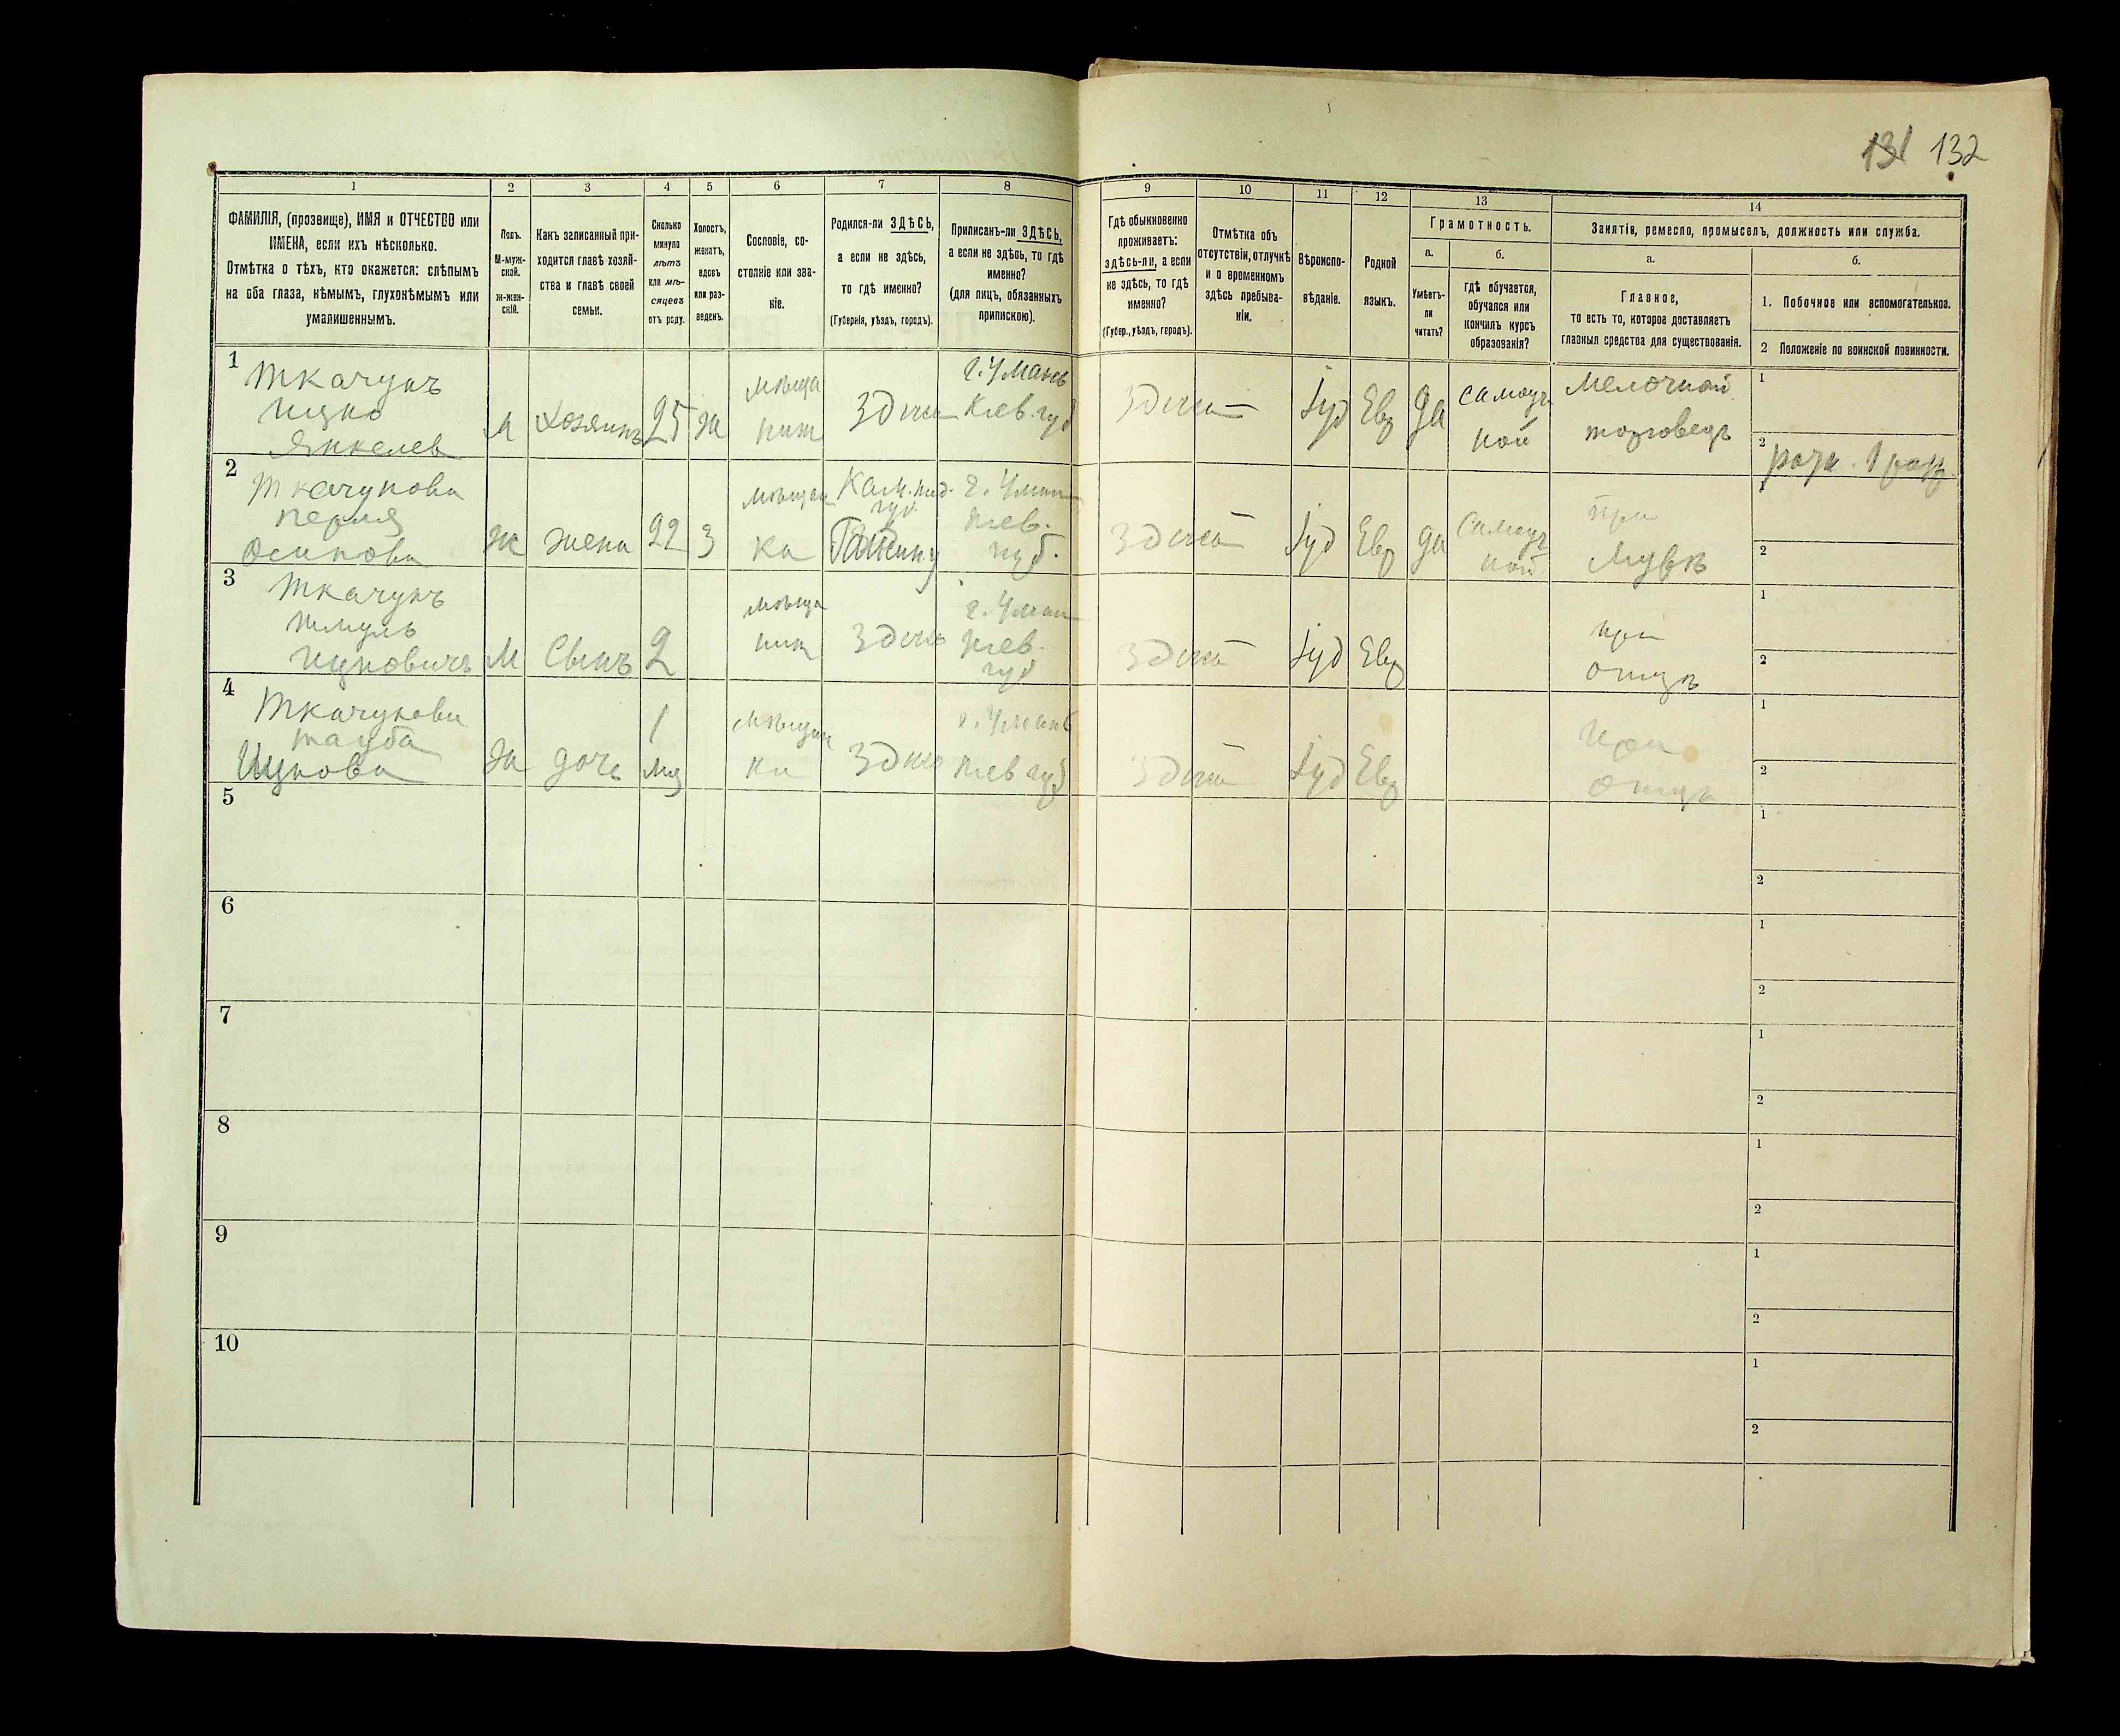 131 132
1 2 3 4 5 6 7 8 9 10 11 12 13 14
ФАМИЛІЯ, (прозвище), ИМЯ и ОТЧЕСТВО или
ИМЕНА, если ихъ нѣсколько.
Отмѣтка о тѣхъ, кто окажется: слѣпымъ
на оба глаза, нѣмымъ, глухонѣмымъ или
умалишеннымъ.
Полъ.
М-муж-
ской.
ж-жен-
скій.
Какъ записанный при-
ходится главѣ хозяй-
ства и главѣ своей
семьи.
Сколько
минуло
лѣтъ
или мѣ-
сяцевъ
отъ роду.
Холостъ,
женатъ,
вдовъ
или раз-
веденъ.
Сословіе, со-
стояніе или зва-
ніе.
Родился-ли ЗДѢСЬ,
а если не здѣсь,
то гдѣ именно?
(Губернія, уѣздъ, городъ).
Приписанъ-ли ЗДѢСЬ,
а если не здѣсь, то гдѣ
именно?
(для лицъ, обязанныхъ
припискою).
Гдѣ обыкновенно
проживаетъ:
здѣсь-ли, а если
не здѣсь, то гдѣ
именно?
(Губер., уѣздъ, городъ).
Отмѣтка объ
отсутствіи, отлучкѣ
и о временномъ
здѣсь пребыва-
ніи.
Вѣроиспо-
вѣданіе.
Родной
языкъ.
Грамотность.
а.
Умѣетъ-
ли
читать?
б.
гдѣ обучается,
обучался или
кончилъ курсъ
образованія?
Занятія, ремесло, промыселъ, должность или служба.
а.
Главное,
то есть то, которое доставляетъ
главныя средства для существованія.
б.
1. Побочное или вспомогательное.
2 Положеніе по воинской повинности.
1
Ткачукъ
Ицко
Янкелев
М
Хозяинъ
25
Ж
мѣща
нин
Здесь
г. Умань
Киев. губ
Здесь
—
Іуд
Евр
да
самоуч
кой
мелочной
торговецъ
1
2
2
Ткачукова
Перля
Осипова
Ж
жена
22
З
мѣщан
ка
Кам. под.
губ.
г. Уман
Киев.
губ.
Здесь
—
Іуд
Евр
да
Самоуч
кой
при
мужѣ
1
2
3
Ткачукъ
Шмуль
Ицкович
М
Сынъ
2
мѣща
нин
Здесь
г. Уман
Киев.
губ
Здесь
—
Іуд
Евр
при
отцѣ
1
2
4
Ткачукова
Тауба
Ицкова
Ж
дочь
1
мѣщан
ка
Здесь
г. Умань
Киев губ
Здесь
—
Іуд
Евр
при
отцѣ
1
2
5
1
2
6
1
2
7
1
2
8
1
2
9
1
2
10
1
2